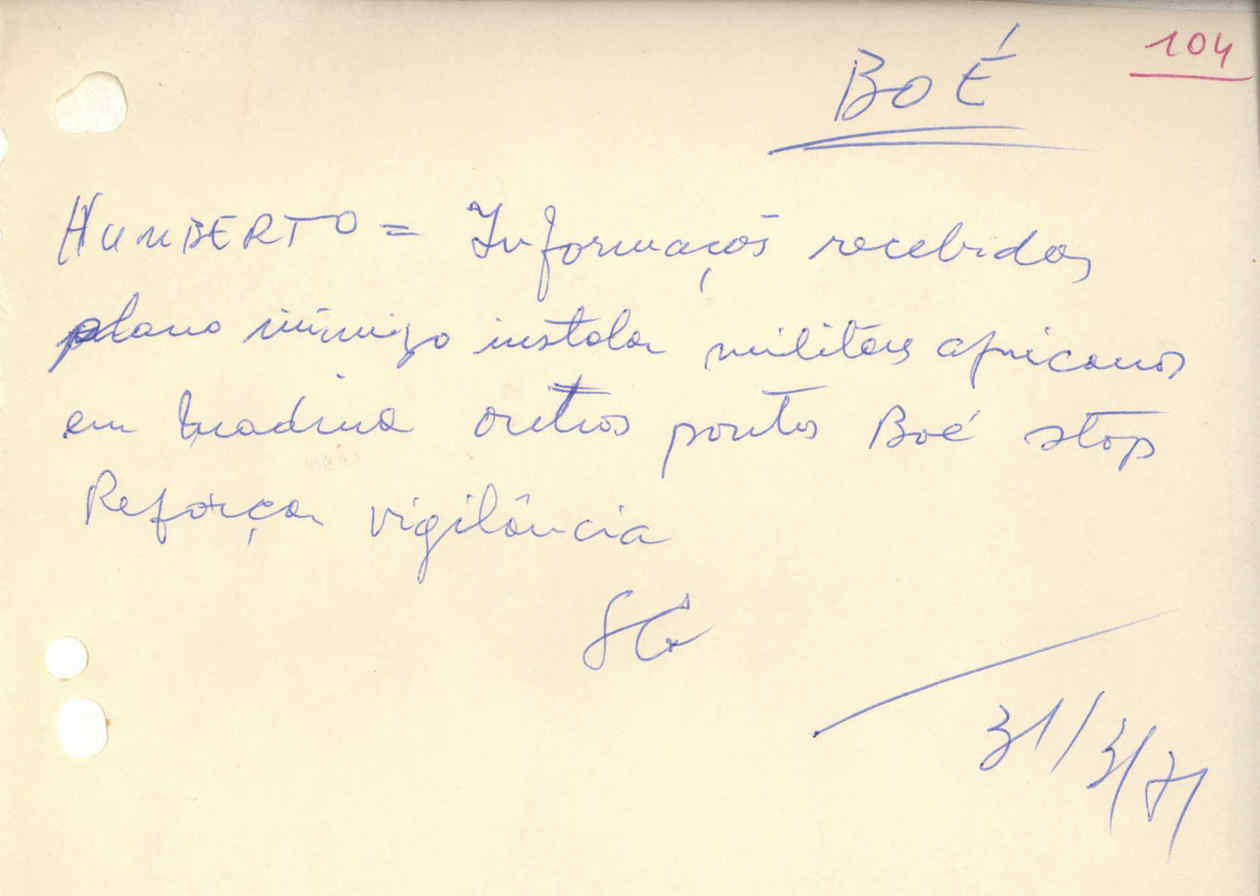 104
BOÉ
HUMBERTO = Informações recebidas
plano inimigo instalar militares africanos
em Madina outros pontos Boé stop
Reforçar vigilância
SG
31/3/71